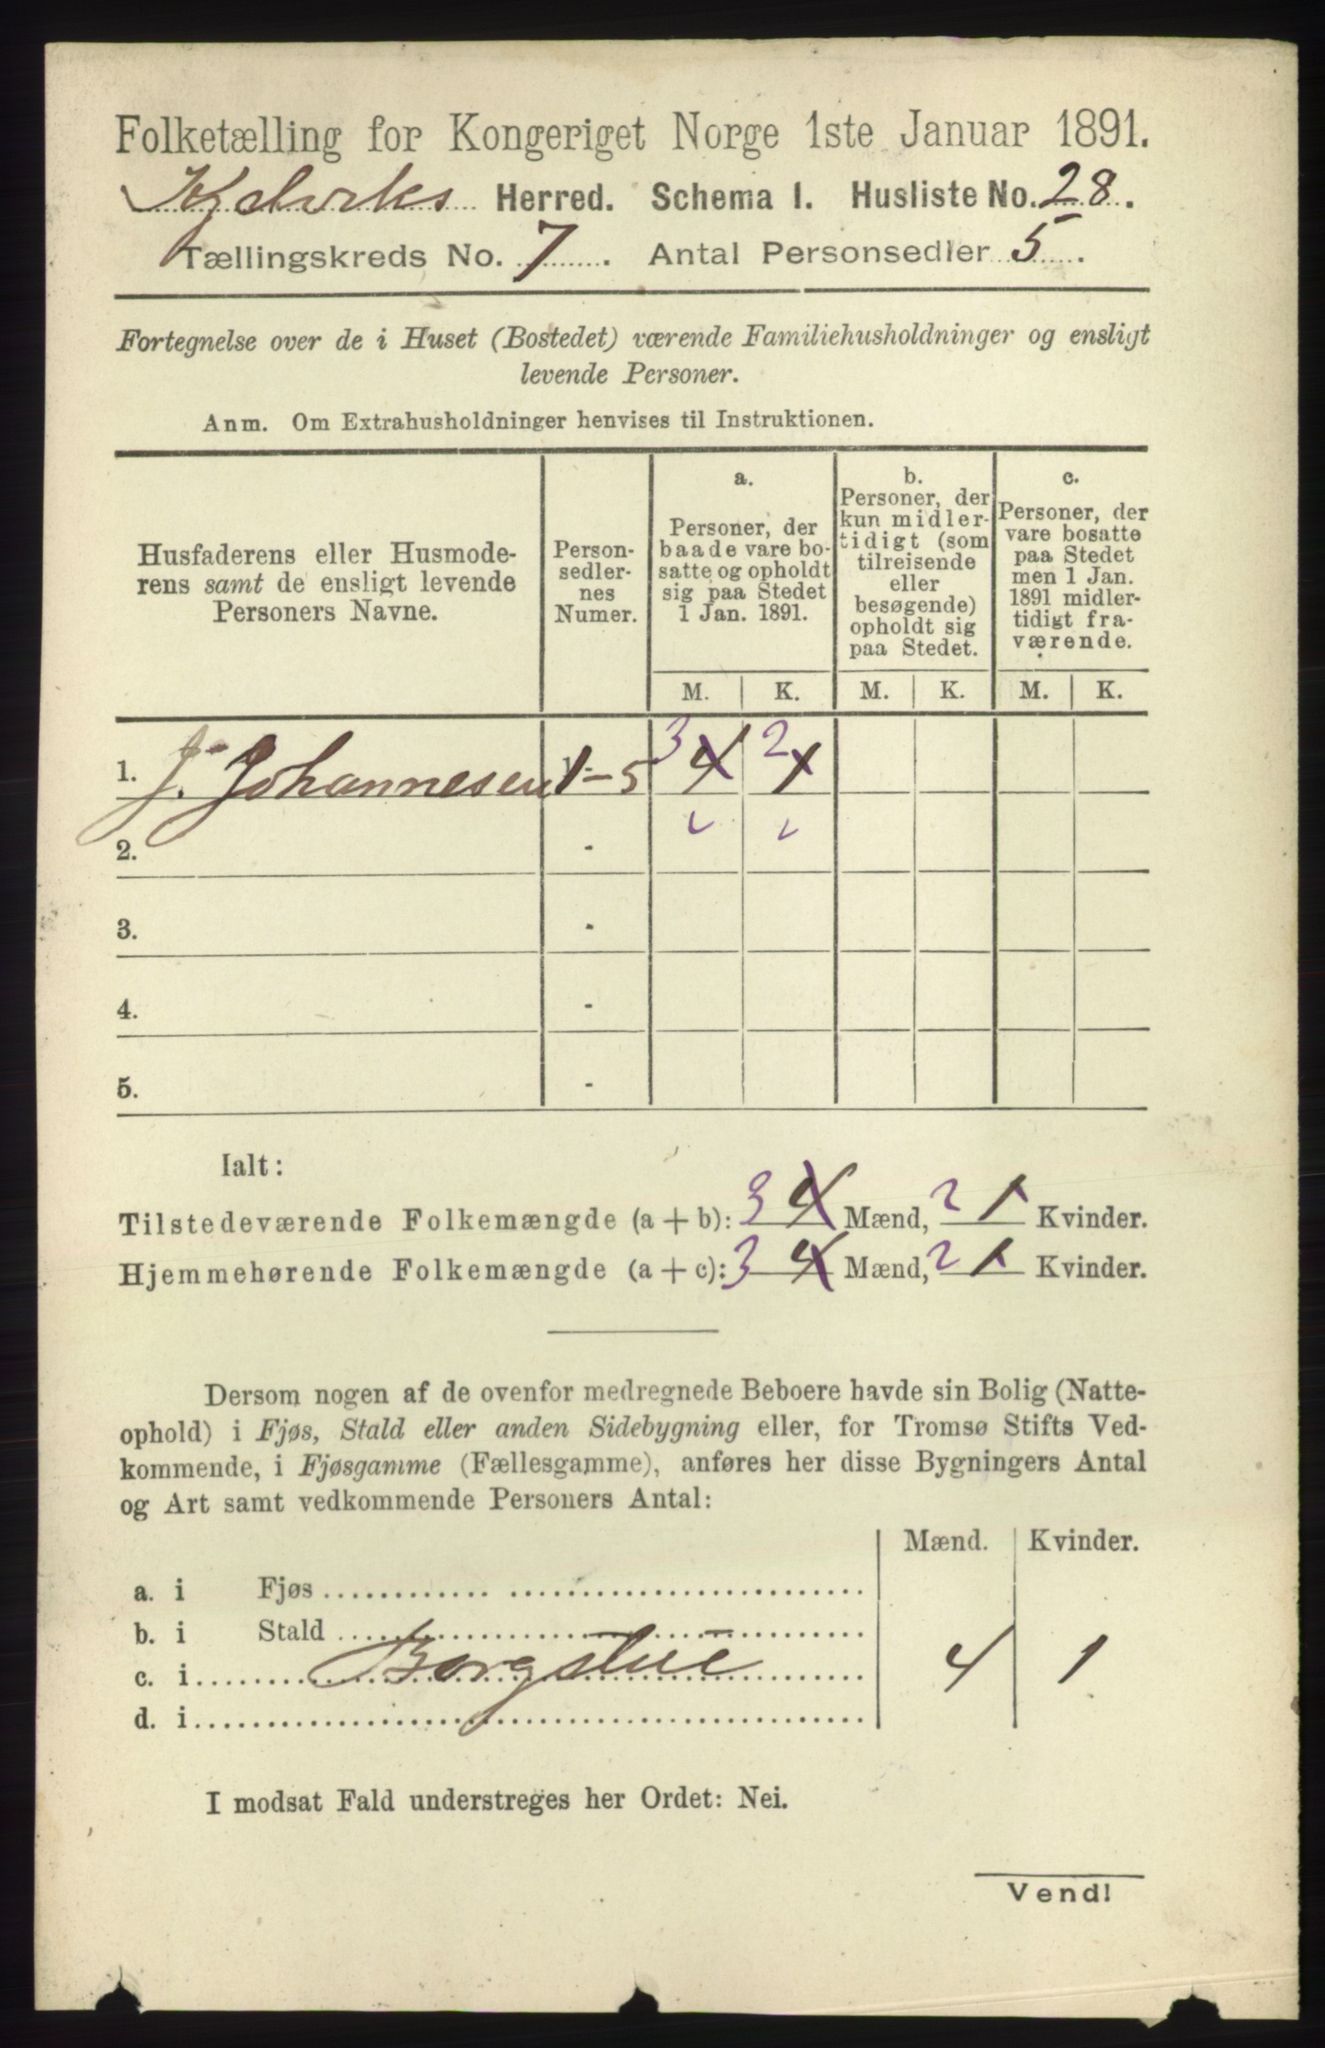 Folketælling for Kongeriget Norge 1ste Januar 1891.
Kjelviks Herred. Schema I. Husliste No. 28.
Tællingskreds No. 7. Antal Personsedler 5.
Fortegnelse over de i Huset (Bostedet) værende Familiehusholdninger og ensligt
levende Personer.
Anm. Om Extrahusholdninger henvises til Instruktionen.
Husfaderens eller Husmode-
rens samt de ensligt levende
Personers Navne.
Person-
sedler-
nes
Numer.
a.
Personer, der
baade vare bo-
satte og opholdt
sig paa Stedet
1 Jan. 1891.
b.
Personer, der
kun midler-
tidigt (som
tilreisende
eller
besøgende)
opholdt sig
paa Stedet.
c.
Personer, der
vare bosatte
paa Stedet
men 1 Jan.
1891 midler-
tidigt fra-
værende.
M. K. M. K. M. K.
1. J. Johannesen 1-5 3 4 2 1
2. -
3. -
4. -
5. -
Ialt:
Tilstedeværende Folkemængde (a + b): 3 4 Mænd, 2 1 Kvinder.
Hjemmehørende Folkemængde (a + c): 3 4 Mænd, 2 1 Kvinder.
Dersom nogen af de ovenfor medregnede Beboere havde sin Bolig (Natte-
ophold) i Fjøs, Stald eller anden Sidebygning eller, for Tromsø Stifts Ved-
kommende, i Fjøsgamme (Fællesgamme), anføres her disse Bygningers Antal
og Art samt vedkommende Personers Antal:
Mænd. Kvinder.
a. i Fjøs
b. i Stald
c. i Borgstue 4 1
d. i
I modsat Fald understreges her Ordet: Nei.
Vend!